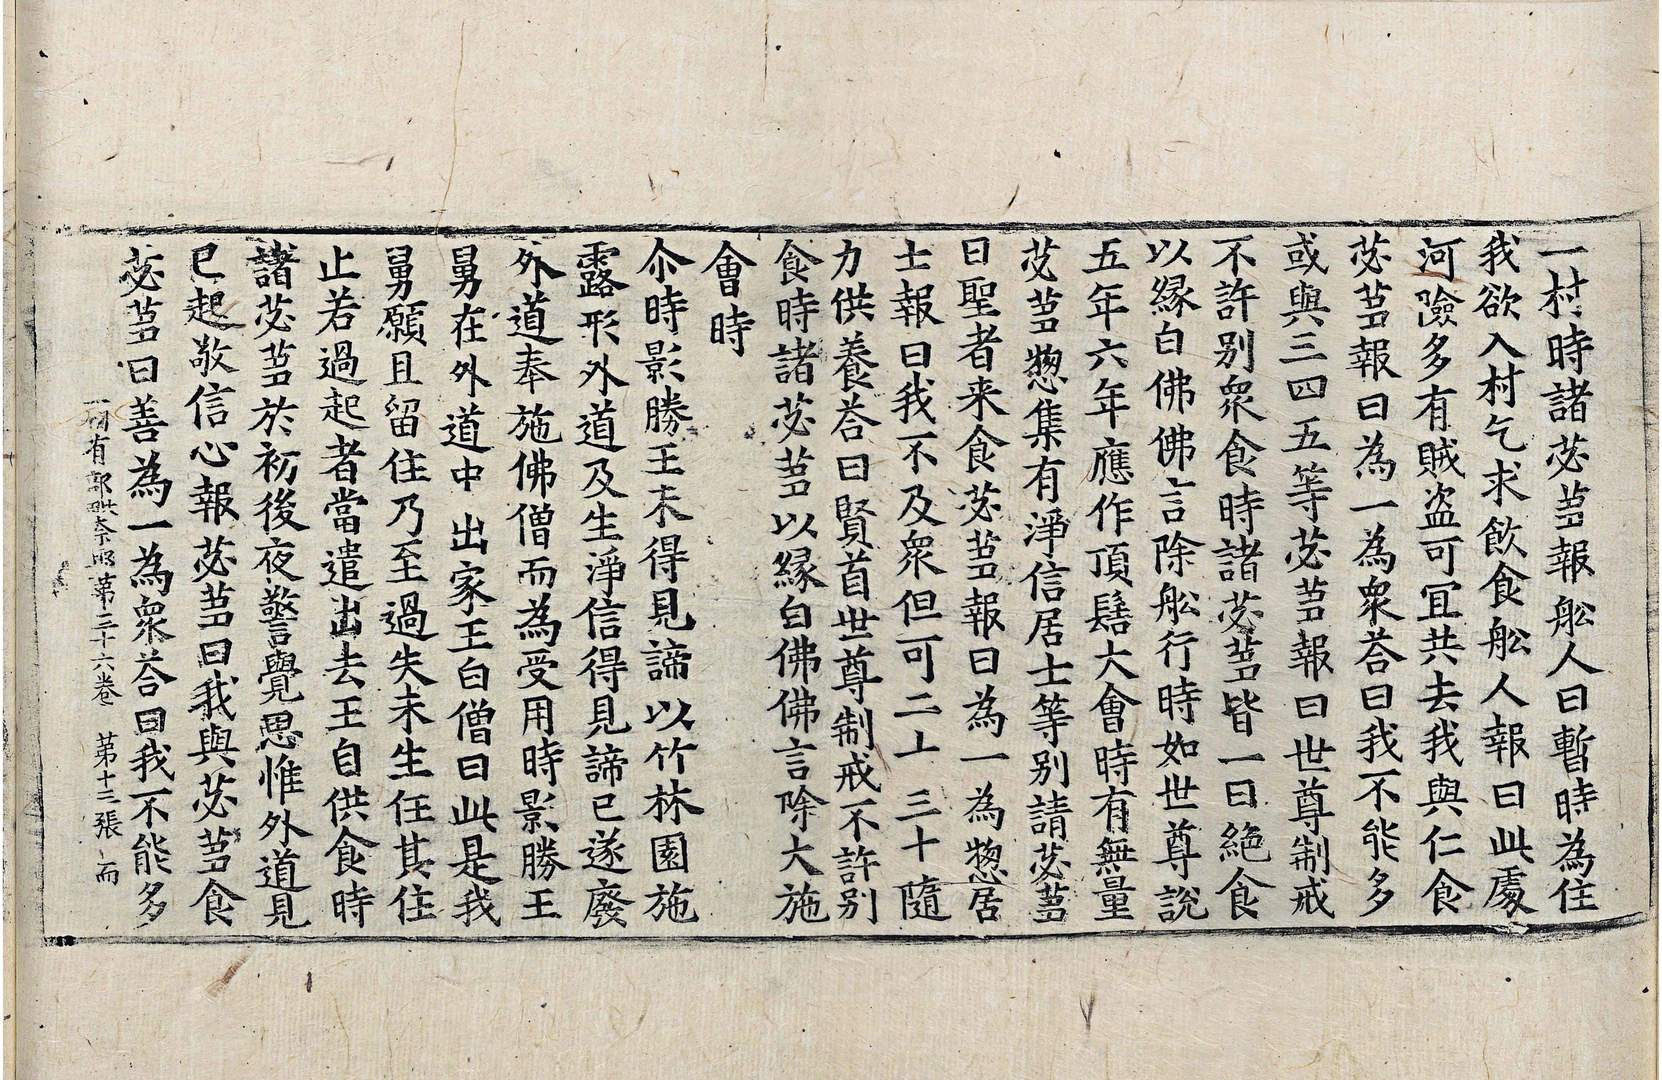 一村時諸苾芻報舩人曰暫時為住
我欲入村乞求飲食舩人報曰此處
河險多有賊盗可冝共去我與仁食
苾芻報曰為一為衆荅曰我不能多
或與三四五等苾芻報曰世尊制戒
不許別衆食時諸苾芻皆一日絶食
以緣白佛佛言除舩行時如世尊說
五年六年應作頂髻大會時有無量
苾芻惣集有淨信居士等別請苾芻
曰聖者来食苾芻報曰為一為惣居
士報曰我不及衆但可二十三十隨
力供養荅曰賢首世尊制戒不許別
食時諸苾芻以緣白佛佛言除大施
會時
尒時影勝王未得見諦以竹林園施
露形外道及生淨信得見諦已遂廢
外道奉施佛僧而為受用時影勝王
舅在外道中出家王白僧曰此是我
舅願且留住乃至過失未生任其住
止若過起者當遣出去王自供食時
諸苾芻於初後夜警覺思惟外道見
已起敬信心報苾芻曰我與苾芻食
苾芻曰善為一為衆荅曰我不能多
一切有部毗奈耶苐三十六卷 苐十三張 而